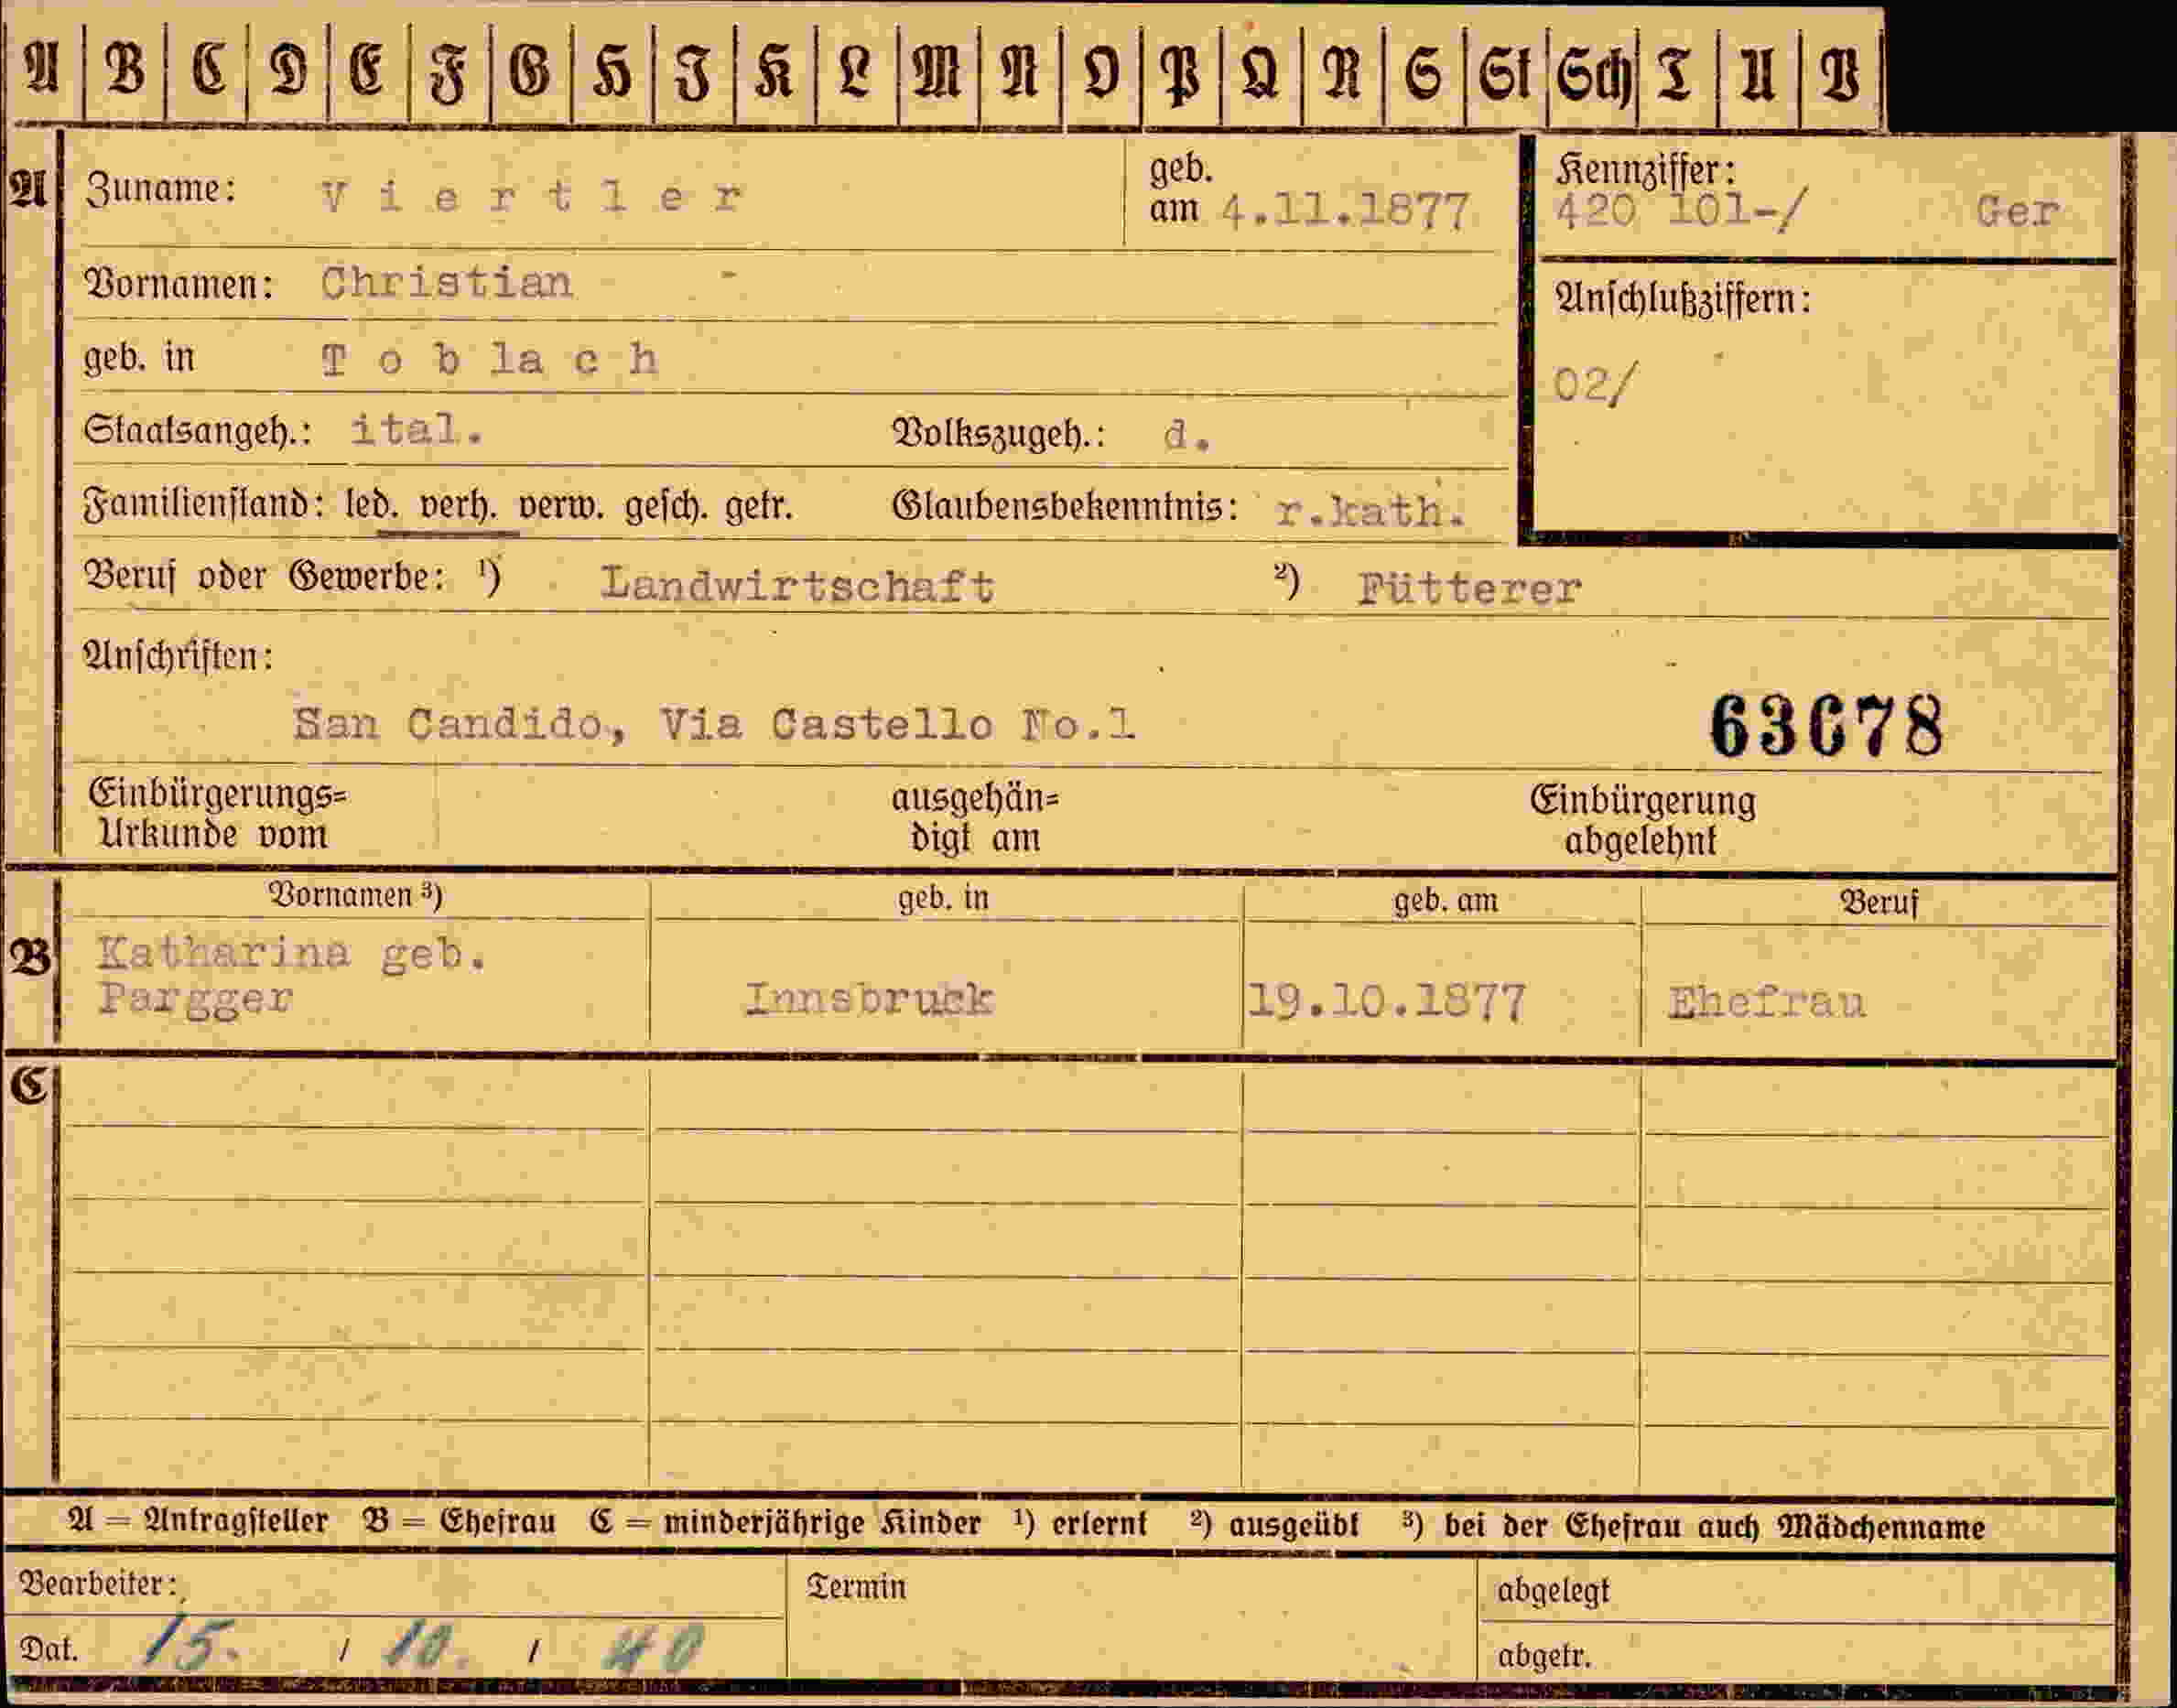 A B C D E F G H J K L M N O P Q R S St Sch T U V
A Zuname: Viertler geb. am 4.11.1877
Kennziffer: 420 101-/ Ger
Vornamen: Christian
Anschlußziffern:
geb. in Toblach
02/
Staatsangeh.: ital. Volkszugeh.: d.
Familienstand: led. verh. verw. gesch. getr. Glaubensbekenntnis: r.kath.
Beruf oder Gewerbe: ¹) Landwirtschaft ²) Fütterer
Anschriften:
San Candido, Via Castello No.1 63678
Einbürgerungs= ausgehän= Einbürgerung
Urkunde vom digt am abgelehnt
Vornamen ³) geb. in geb. am Beruf
B Katharina geb.
Pargger Innsbruck 19.10.1877 Ehefrau
C
A = Antragsteller B = Ehefrau C = minderjährige Kinder ¹) erlernt ²) ausgeübt ³) bei der Ehefrau auch Mädchenname
Bearbeiter: Termin abgelegt
Dat. 15. / 10. / 40 abgetr.